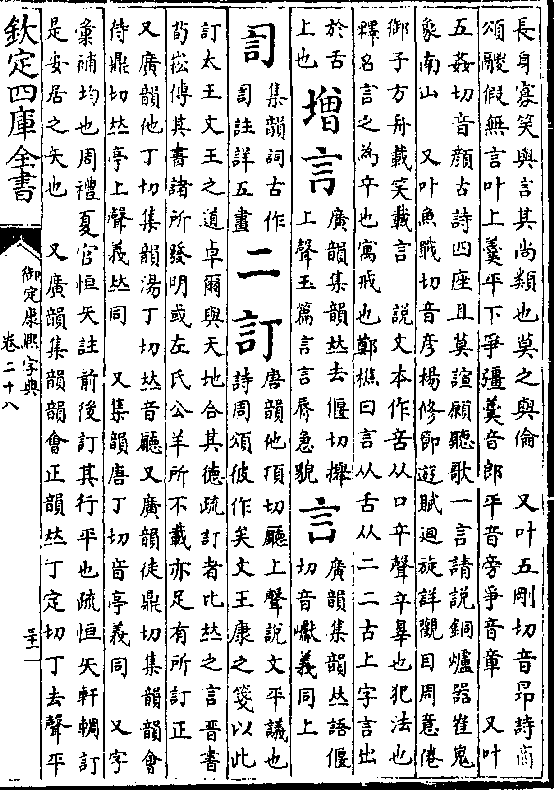 長身寡笑與言其尚類也莫之與倫　又叶五剛切音昻詩商
頌鬷假無言叶上羹平下爭彊羹音郎平音旁爭音章　又叶
五姦切音顔古詩四座且莫諠願聽歌一言請説銅爐器崔嵬
象南山　又叶魚戰切音彦楊修節遊賦迴旋詳觀目周意倦
御子方舟載笑載言　説文本作䇂从口䇂聲䇂辠也犯法也
釋名言之為卒也寓戒也鄭樵曰言从舌从二二古上字言出
於舌
上也
增言
廣韻集韻𠀤去偃切攑
上聲玉篇言言脣急貌
言
廣韻集韻𠀤語偃
切音巘義同上
訇
集韻詞古作
訇註詳五畫
二訂
唐韻他頂切廳上聲説文平議也
詩周頌彼作矣文王康之箋以此
訂太王文王之道卓爾與天地合其德疏訂者比𠀤之言晉書
荀崧傳其書諸所發明或左氏公羊所不載亦足有所訂正
又廣韻他丁切集韻湯丁切𠀤音聽又廣韻徒鼎切集韻韻會
待鼎切𠀤亭上聲義𠀤同　又集韻唐丁切音亭義同　又字
彙補均也周禮夏官恒矢註前後訂其行平也疏恒矢軒輖訂
是安居之矢也　又廣韻集韻韻會正韻𠀤丁定切丁去聲平
欽定四庫全書
御定康熙字典
卷二十八